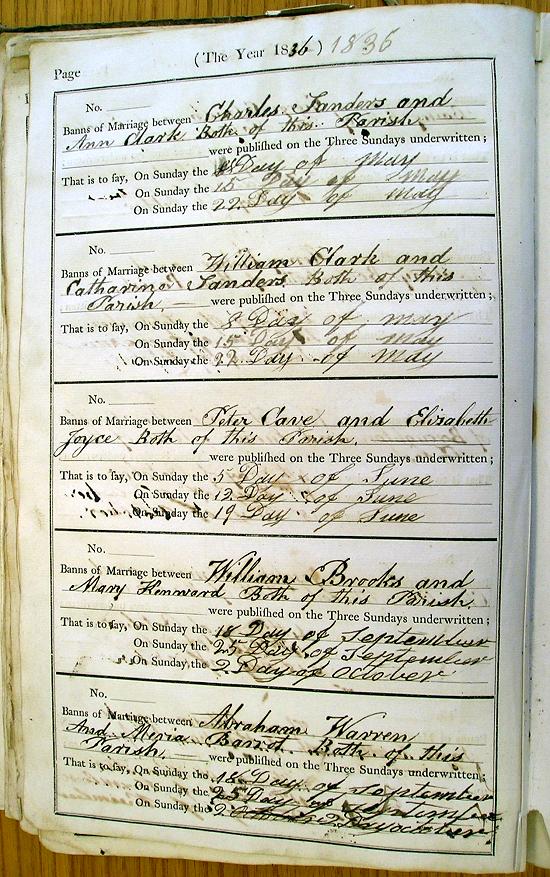 (The Year 1836) 1836
Page
No.
Banns of Marriage between Charles Sanders and
Ann Clark Both of this Parish
were published on the Three Sundays underwritten;
That is to say, On Sunday the 8 Day of May
On Sunday the 15 Day of May
On Sunday the 22 Day of May
No.
Banns of Marriage between William Clark and
Catharine Sanders Both of this
Parish. were published on the Three Sundays underwritten;
That is to say, On Sunday the 8 Day of May
On Sunday the 15 Day of May
On Sunday the 22 Day of May
No.
Banns of Marriage between Peter Cave and Elizabeth
Joyce Both of this Parish.
were published on the Three Sundays underwritten;
That is to say, On Sunday the 5 Day of June
On Sunday the 12 Day of June
On Sunday the 19 Day of June
No.
Banns of Marriage between William Brooks and
Mary Kennward Both of this Parish
were published on the Three Sundays underwritten;
That is to say, On Sunday the 18 Day of September
On Sunday the 25 Day of September
On Sunday the 2 Day of October
No.
Banns of Marriage between Abraham Warren
And Meria Barrot Both of this
Parish were published on the Three Sundays underwritten;
That is to say, On Sunday the 18 Day of September
On Sunday the 25 Day of September
On Sunday the 2 Day October